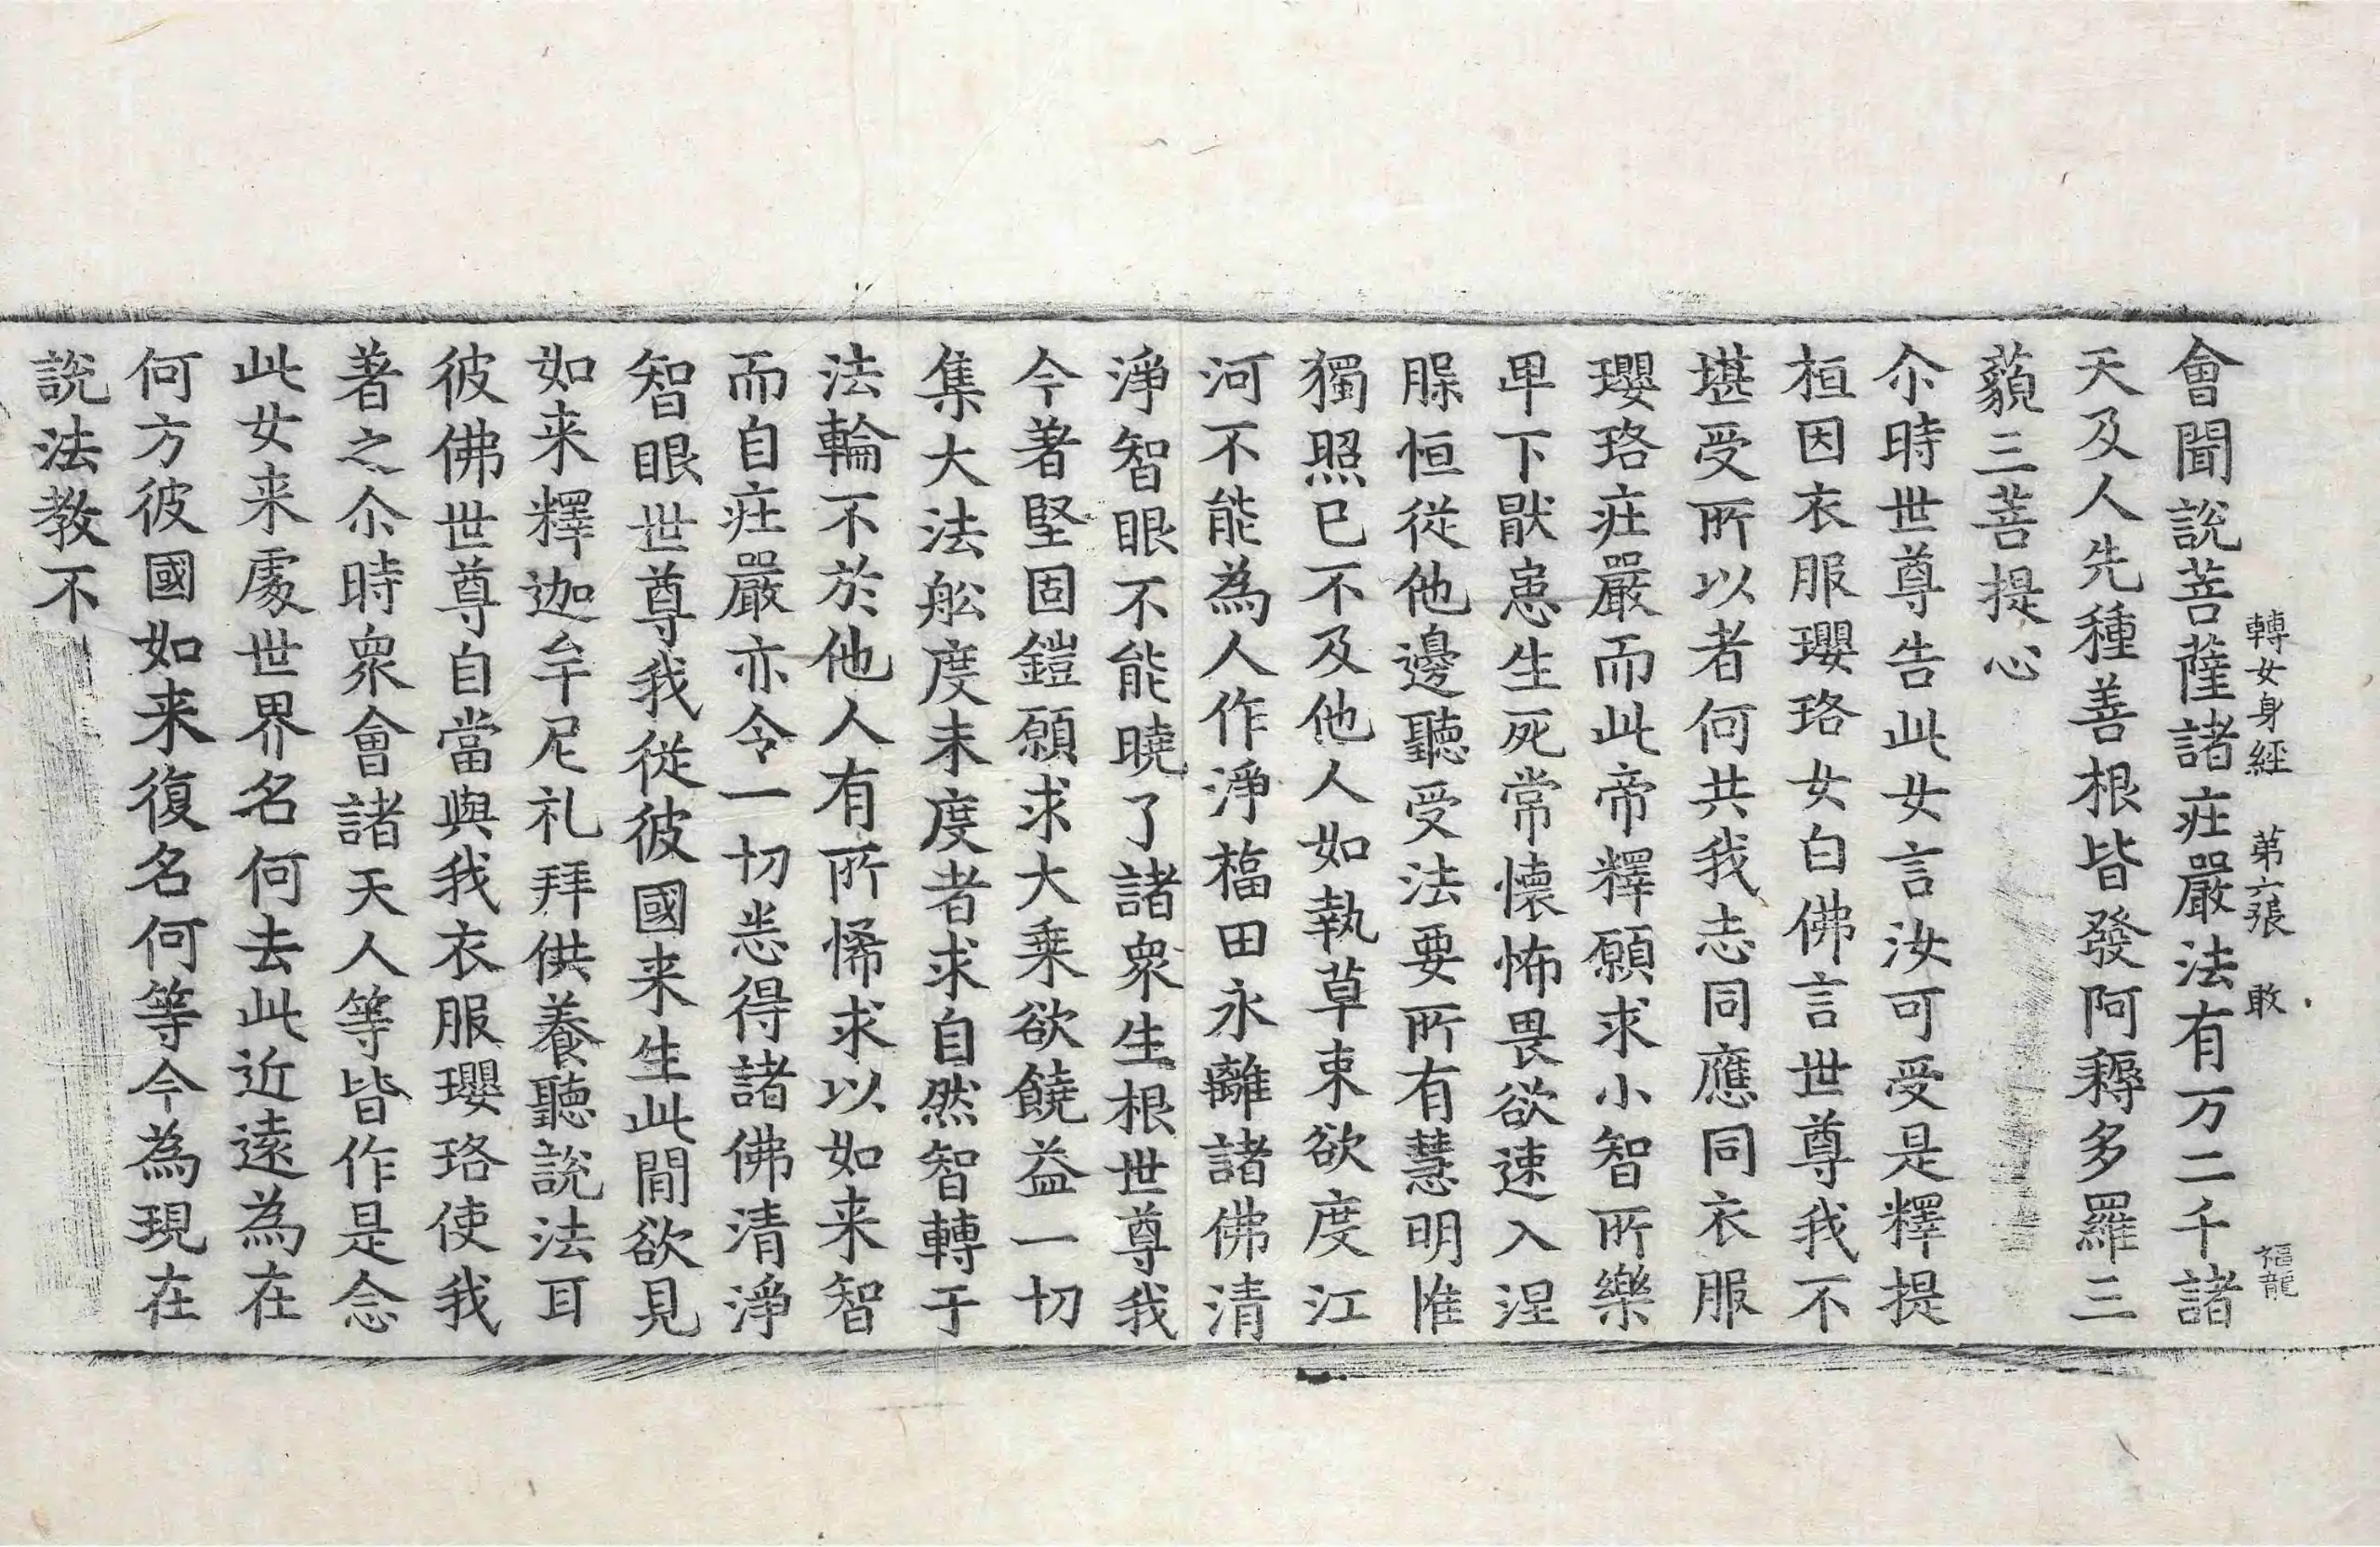 轉女身經 第六張 敢 福龍
會聞說菩薩諸莊嚴法有万二千諸
天及人先種善根皆發阿耨多羅三
藐三菩提心
尒時世尊告此女言汝可受是釋提
桓因衣服瓔珞女白佛言世尊我不
堪受所以者何共我志同應同衣服
瓔珞莊嚴而此帝釋願求小智所樂
卑下猒患生死常懷怖畏欲速入涅
縣恒從他邊聽受法要所有慧明惟
獨照已不及他人如執草束欲度江
河不能為人作淨福田永離諸佛清
淨智眼不能曉了諸衆生根世尊我
今著堅固鎧願求大乗欲饒益一切
集大法舩度未度者求自然智轉于
法輪不於他人有所悕求以如来智
而自莊嚴亦令一切悉得諸佛清淨
智眼世尊我從彼國来生此閒欲見
如来釋迦牟尼礼拜供養聽說法耳
彼佛世尊自當與我衣服瓔珞使我
著之尒時衆會諸天人等皆作是念
此女来處世界名何去此近遠為在
何方彼國如来復名何等今為現在
說法教不